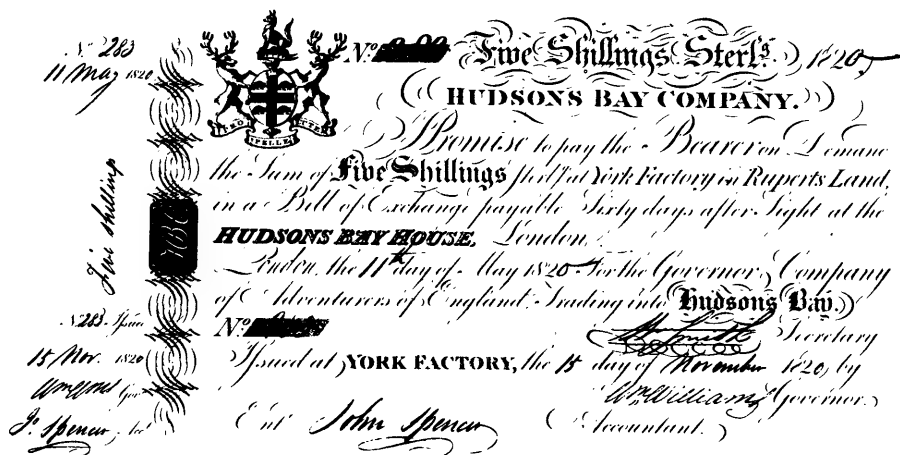 No. 283
11 May 1820
Five Shillings
No. 283 Issued
15 Nov. 1820
Jn. Spencer, Acct.
PRO PELLE CUTEM
No. Five Shillings Sterls. 1820
HUDSONS BAY COMPANY.
I Promise to pay the Bearer on Demand
the Sum of Five Shillings Sterls. at York Factory in Ruperts Land,
in a Bill of Exchange payable Sixty days after Sight at the
HUDSONS BAY HOUSE, London.
London, the 11th day of May 1820 For the Governor & Company
of Adventurers of England, Trading into Hudsons Bay.
No. Wm Smith Secretary
Issued at YORK FACTORY, the 15 day of November 1820, by
Wm Williams Governor.
Ent. John Spencer Accountant.